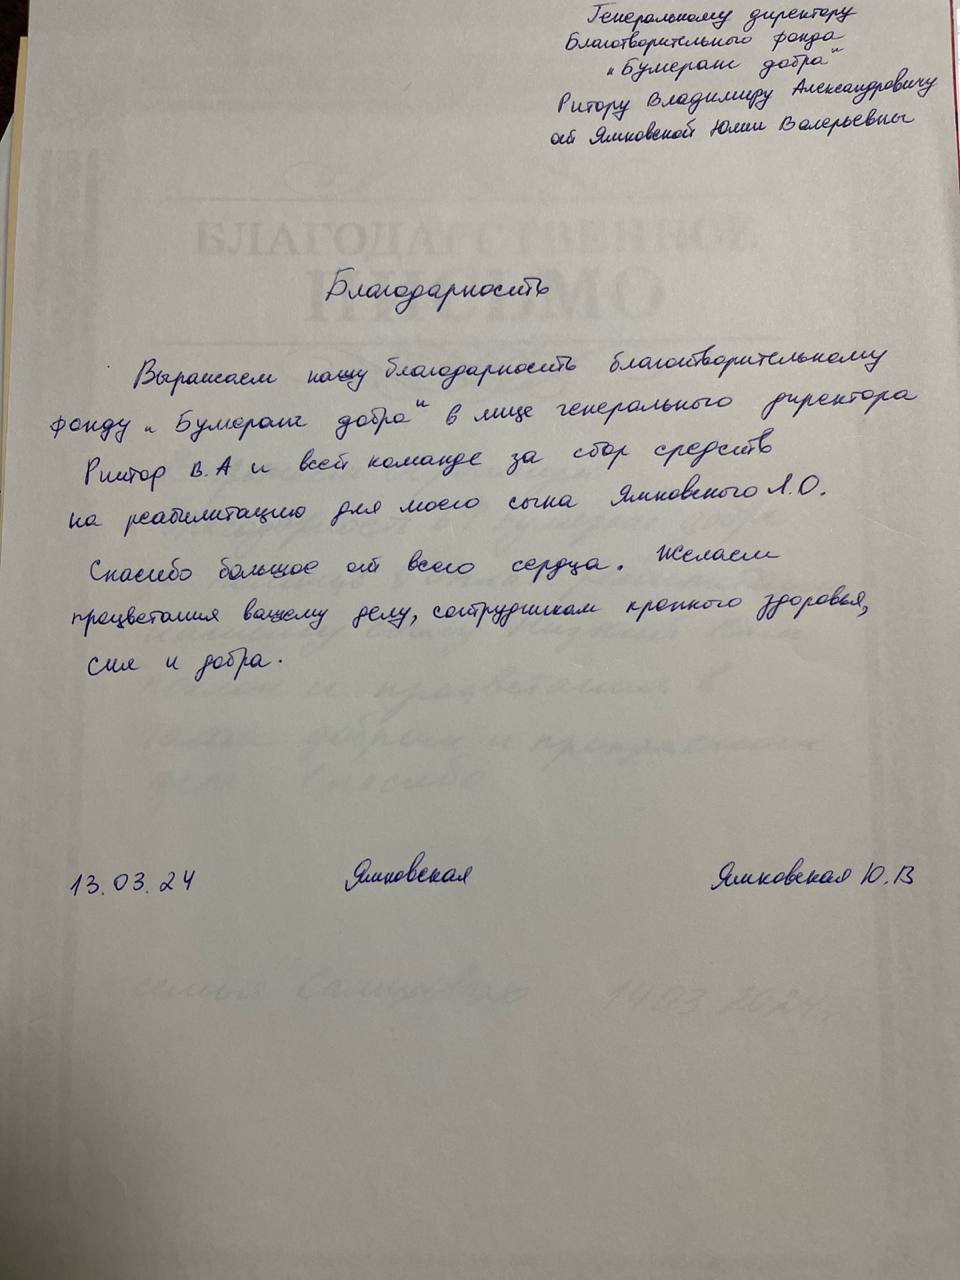 Генеральному директору
Благотворительного фонда
"Бумеранг добра"
Ритору Владимиру Александровичу
от Ямковской Юлии Валерьевны
БЛАГОДАРСТВЕННОЕ
ПИСЬМО
Благодарность
Выражаем нашу благодарность благотворительному
фонду "Бумеранг добра" в лице генерального директора
Риттор В.А и всей команде за сбор средств
на реабилитацию для моего сына Ямковского Л.О.
Спасибо большое от всего сердца. Желаем
процветания вашему делу, сотрудникам крепкого здоровья,
сил и добра.
13.03.24 Ямковская Ямковская Ю.В
семья 14.03.2024г.